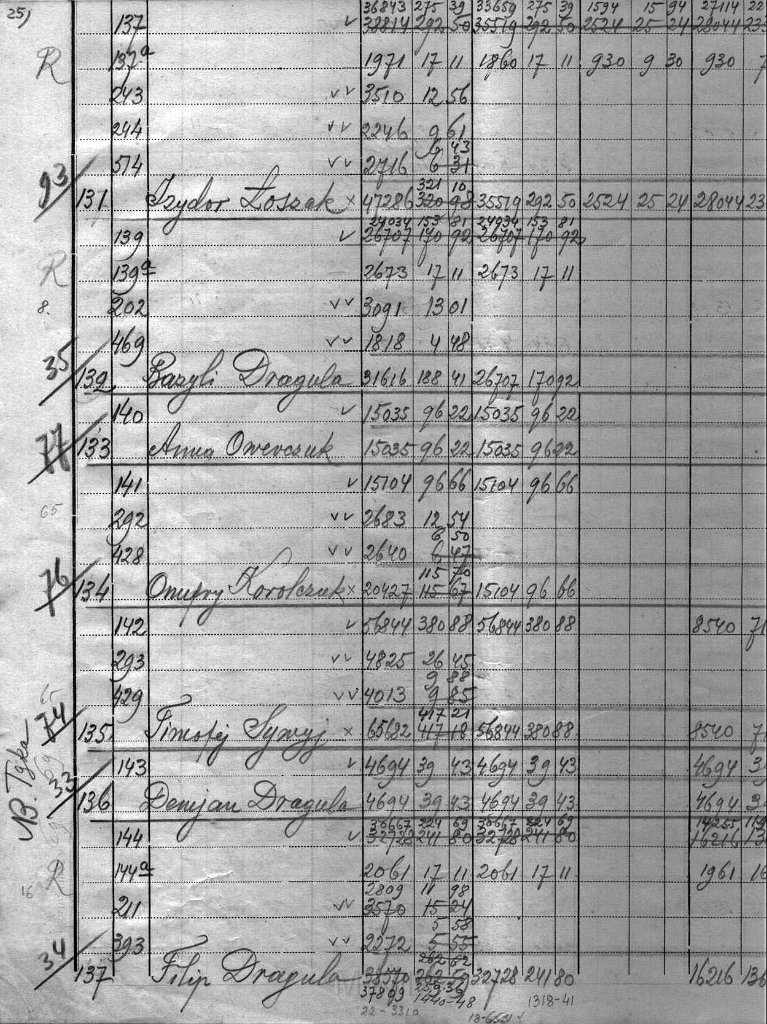 25)
36843 275 39 33659 275 39 1594 15 94 27114 22
137 v 38814 292 50 35519 292 50 2524 25 24 28044 233
R 137a 1971 17 11 1860 17 11 930 9 30 930 7
243 vv 3510 12 56
244 vv 2246 9 61
6 43
574 vv 2716 6 31
93 321 10
131 Izydor Łoszak x 47286 320 98 35519 292 50 2524 25 24 28044 23
24034 153 81 24034 153 81
139 v 26707 170 92 26707 170 92
R 139a 2673 17 11 2673 17 11
8. 202 vv 3091 13 01
469 vv 1818 4 48
35 132 Bazyli Dragula 31616 188 41 26707 170 92
140 v 15035 96 22 15035 96 22
77 133 Anna Owerczuk 15035 96 22 15035 96 22
141 v 15104 96 66 15104 96 66
65 292 vv 2683 12 54
6 50
428 vv 2640 6 47
76 115 70
134 Onufry Korolczuk x 20427 115 67 15104 96 66
142 v 56844 380 88 56844 380 88 8540 71
293 vv 4825 26 45
9 88
429 vv 4013 9 85
74 417 21
135 Timofej Sywyj x 65682 417 18 56844 380 88 8540 71
143 v 4694 39 43 4694 39 43 4694 3
33 136 Demjan Dragula 4694 39 43 4694 39 43 4694 3
30667 224 69 30667 224 69 14255 119
144 v 32728 241 80 32728 241 80 16216 136
R 144a 2061 17 11 2061 17 11 1961 16
2809 11 98
211 vv 3570 15 24
5 58
393 vv 2272 5 55
34 262 62
137 Filip Dragula 38570 262 59 32728 241 80 16216 136
37899 259 36
1440-48 1318-41
22-3310 18-6531 v